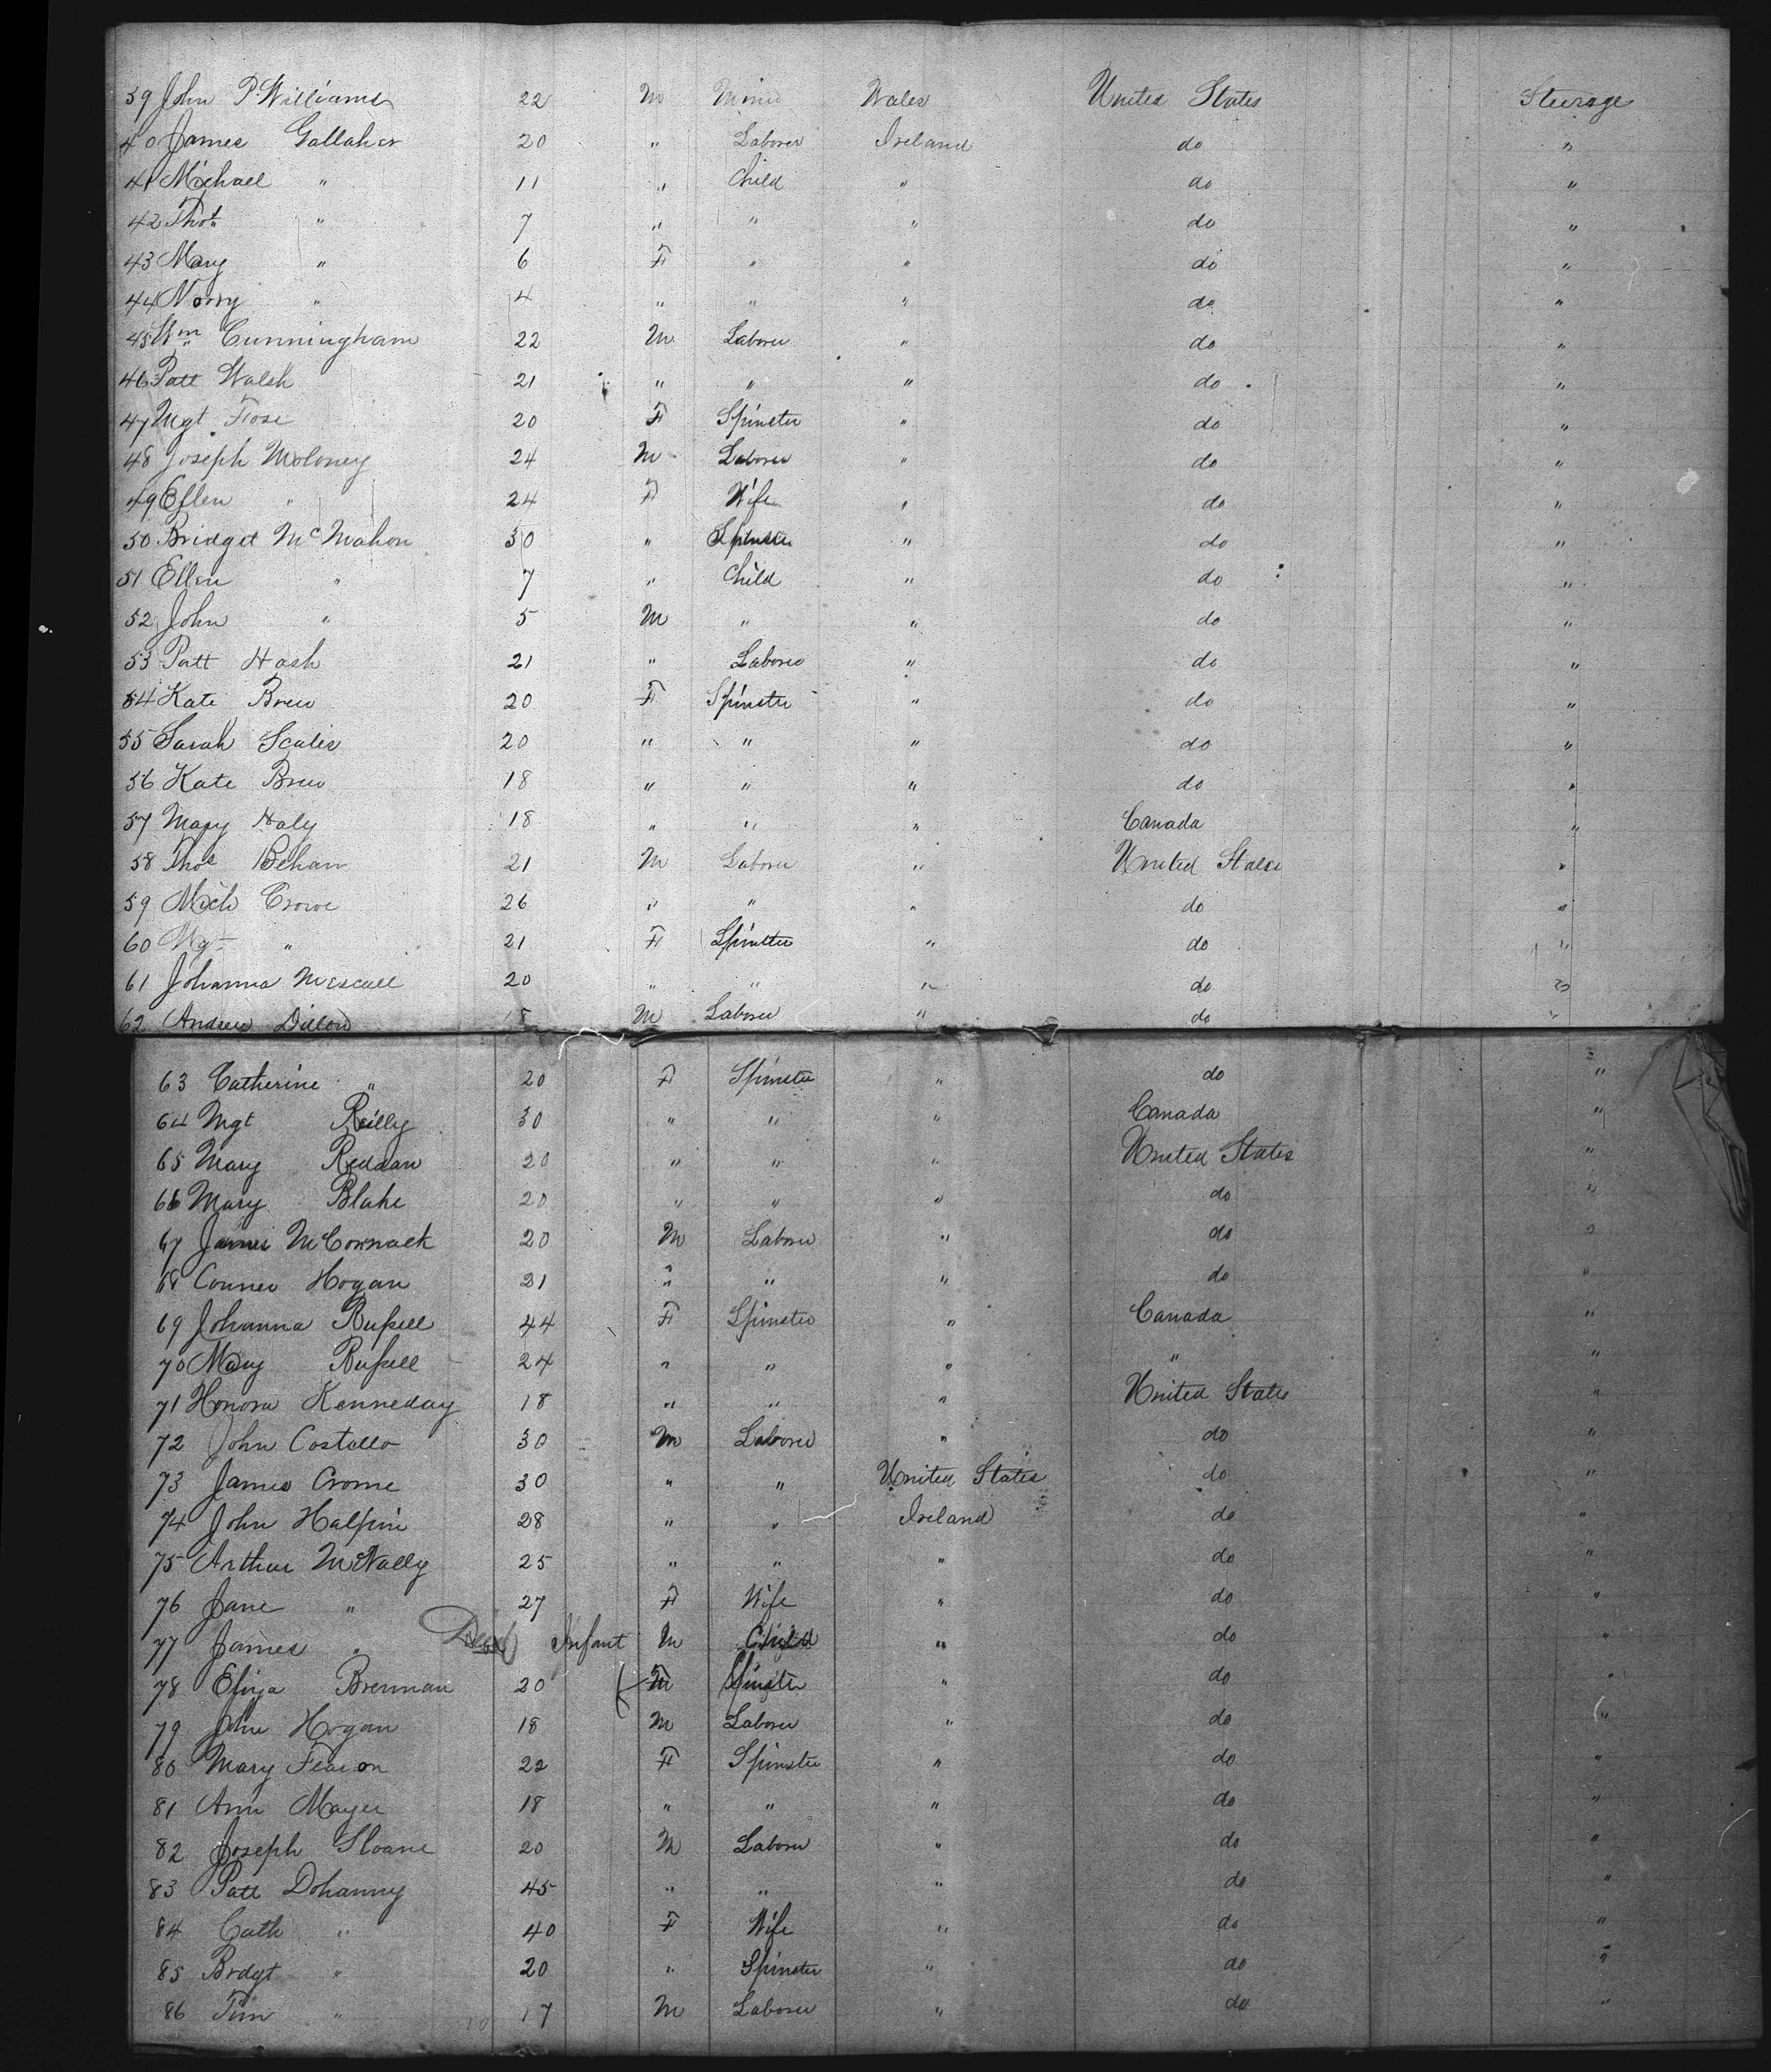 39 John P. Williams 22 M Miner Wales United States Steerage
40 James Gallaher 20 " Laborer Ireland do "
41 Michael " 11 " Child " do "
42 Thos " 7 " " " do "
43 Mary " 6 F " " do "
44 Norry " 4 " " " do "
45 Wm Cunningham 22 M Laborer " do "
46 Patt Walsh 21 " " " do "
47 Mgt 20 F Spinster " do "
48 Joseph Moloney 24 M Laborer " do "
49 Ellen " 24 F Wife " do "
50 Bridget McMahon 30 " Spinster " do "
51 Ellen " 7 " Child " do "
52 John " 5 M " " do "
53 Patt Hash 21 " Laborer " do "
54 Kate Brew 20 F Spinster " do "
55 Sarah Scales 20 " " " do "
56 Kate Brew 18 " " " do "
57 Mary Haly 18 " " " Canada "
58 Thos Behan 21 M Laborer " United States "
59 Mich Crowe 26 " " " do "
60 Mgt " 21 F Spinster " do "
61 Johanna Mescall 20 " " " do "
62 Andrew Dillon 18 M Laborer " do "
63 Catherine " 20 F Spinster " do "
64 Mgt Reilly 30 " " " Canada "
65 Mary Reddan 20 " " " United States "
66 Mary Blake 20 " " " do "
67 James McCormack 20 M Laborer " do "
68 Conner Hogan 21 " " " do "
69 Johanna Russell 44 F Spinster " Canada "
70 Mary Russell 24 " " " " "
71 Honora Kenneday 18 " " " United States "
72 John Costello 30 M Laborer " do "
73 James Crome 30 " " United States do "
74 John Halpin 28 " " Ireland do "
75 Arthur McNally 25 " " " do "
76 Jane " 27 F Wife " do "
77 James " Died Infant M Child " do "
78 Eliza Brennan 20 F Spinster " do "
79 John Hogan 18 M Laborer " do "
80 Mary Fearon 22 F Spinster " do "
81 Ann Mayer 18 " " " do "
82 Joseph Sloane 20 M Laborer " do "
83 Patt Dohanny 45 " " " do "
84 Cath " 40 F Wife " do "
85 Brdgt " 20 " Spinster " do "
86 Tim " 17 M Laborer " do "